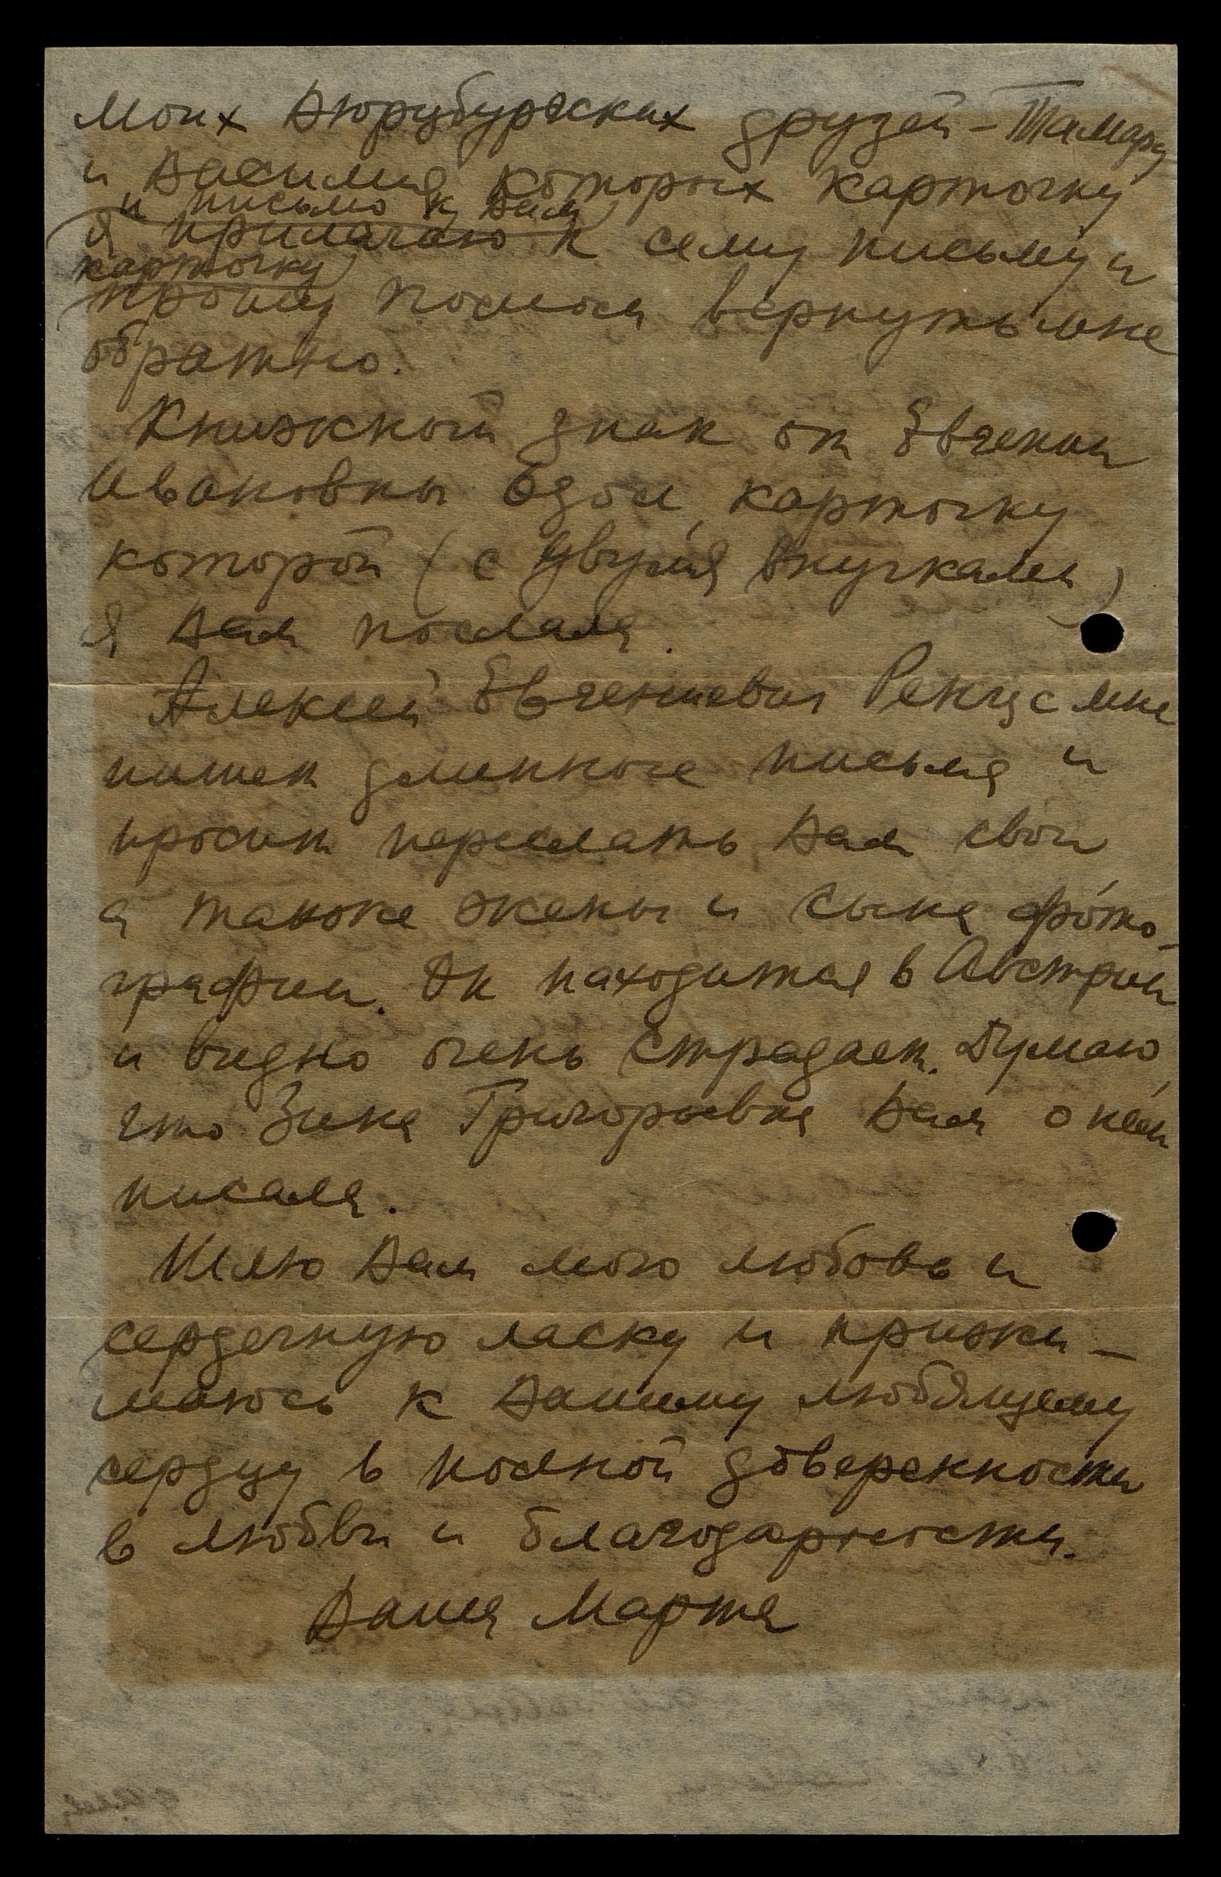 моих Вюрцбургских друзей – Тамары
и Василия которых карточку
и письмо к Вам
я прилагаю к сему письму и
карточку
прошу потом вернуть мне
обратно.
Книжный знак от Евгении
Ивановны Одом, карточку
которой (с двумя внучками)
я Вам послала.
Алексей Евгениевич мне
пишет длинные письма и
просит переслать Вам свои
а также жены и сына фото-
графии. Он находится в Австрии
и видно очень страдает. Думаю,
что Зина Григорьевна Вам о нем
писала.
Шлю Вам мою любовь и
сердечную ласку и прижи-
маюсь к Вашему любящему
сердцу в полной доверенности
в любви и благодарности.
Ваша Марта